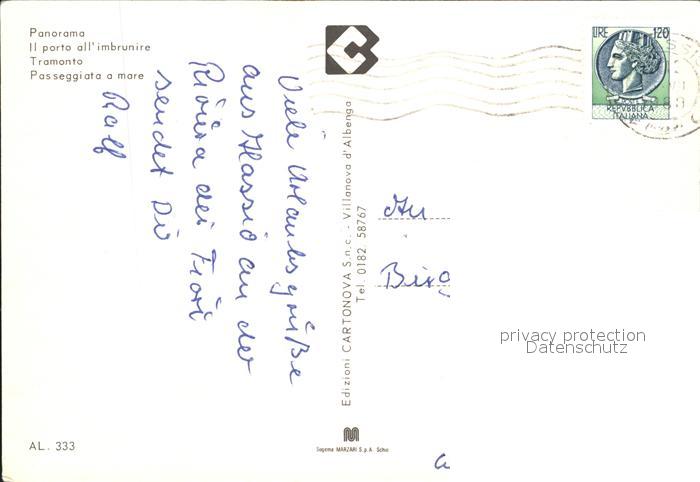 Panorama
Il porto all'imbrunire
Tramonto
Passeggiata a mare
LIRE 120
REPVBBLICA
ITALIANA
Viele Urlaubsgrüße
aus Alassio an der
Riviera dei Fiori
sendet Dir
Ralf
Edizioni CARTONOVA S.n.c. - Villanova d'Albenga
Tel. 0182 58767
An
privacy protection
Datenschutz
AL. 333
Sagoma MARZARI S.p.A. Schio